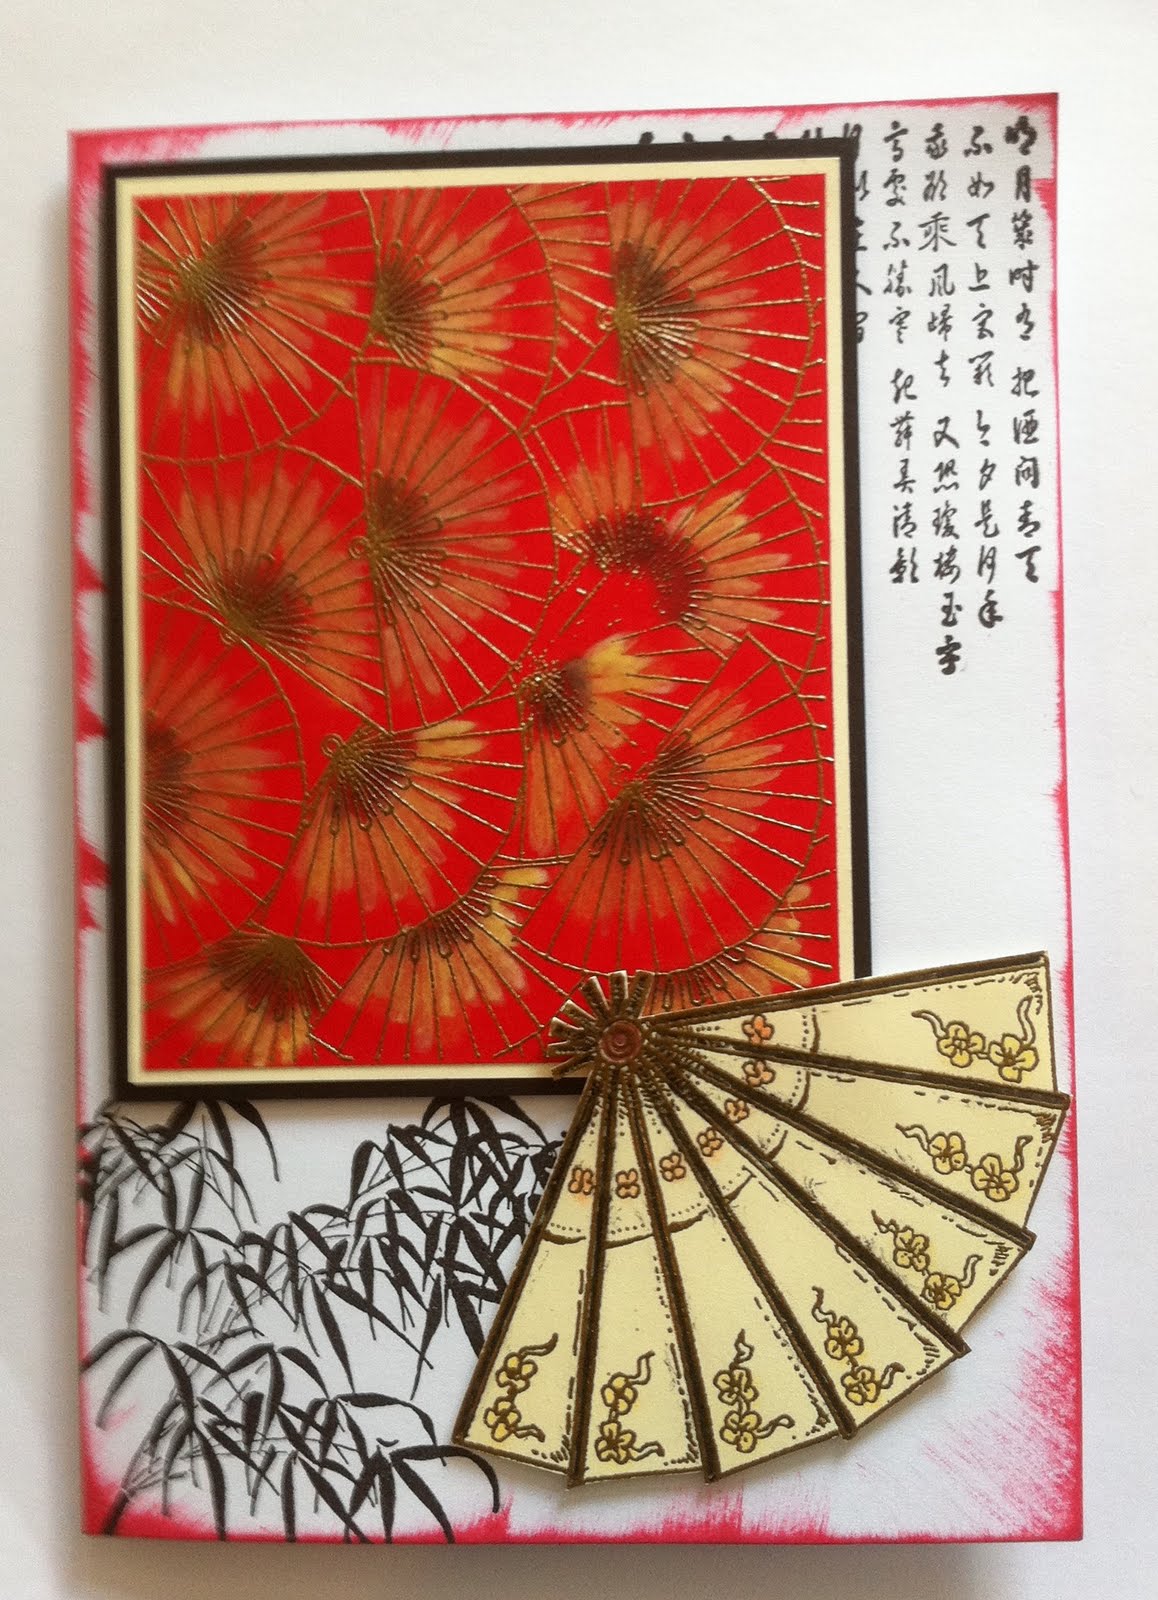 明月幾時有 把酒問青天
不知天上宮闕 今夕是何年
我欲乘風歸去 又恐瓊樓玉宇
高處不勝寒 起舞弄清影